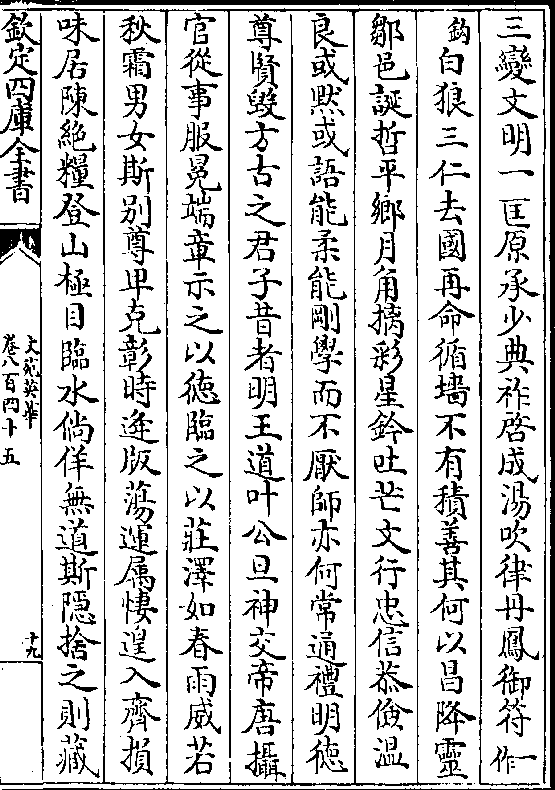 三變文明一匡原承少典祚啓成湯吹律丹鳳御符一作
鈎白狼三仁去國再命循墻不有積善其何以昌降靈
鄒邑誕哲平鄉月角摛彩星鈐吐芒文行忠信恭儉溫
良或黙或語能柔能剛學而不厭師亦何常通禮明徳
尊賢毀方古之君子昔者明王道叶公旦神交帝唐攝
官從事服冕端章示之以徳臨之以莊澤如春雨威若
秋霜男女斯别尊卑克彰時逢版蕩運属悽遑入齊損
味居陳絶糧登山極目臨水倘佯無道斯隠捨之則藏
欽定四庫全書
文苑英華
卷八百四十五
十九